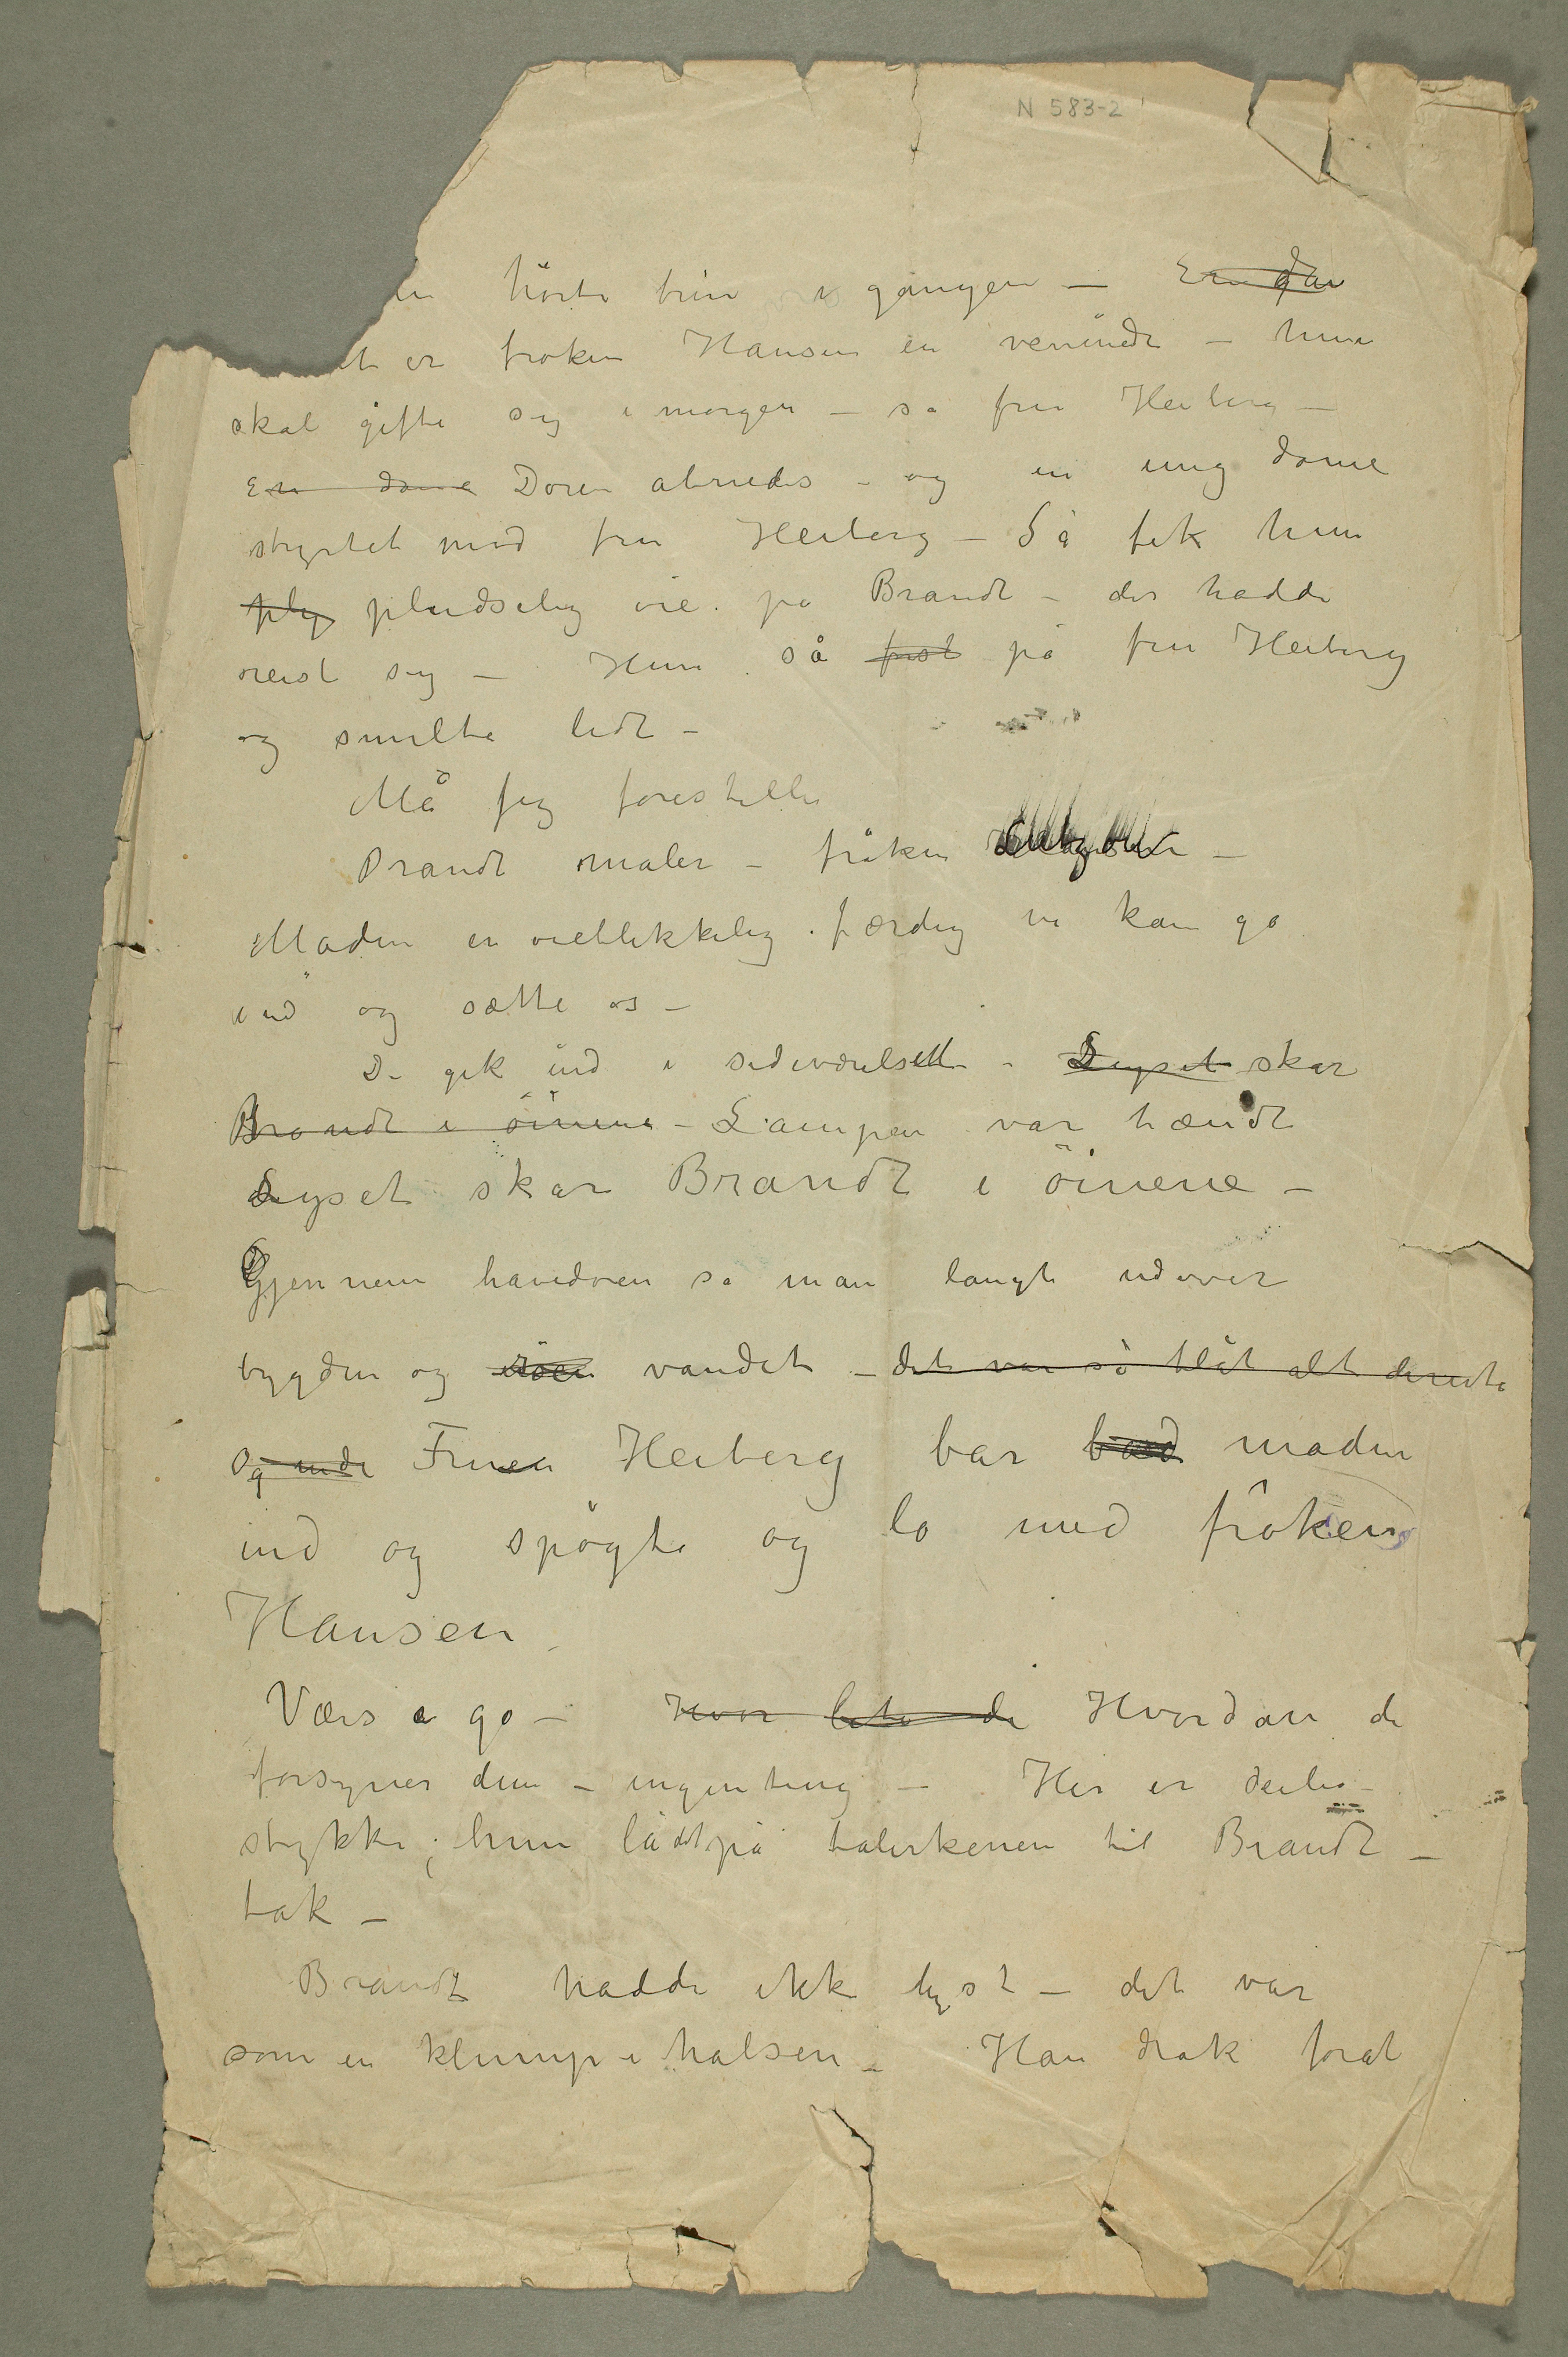 N 583-2
hörte trin i gangen — En dam
et er frøken Hansen en veninde – hun
skal gifte sig i morgen – sa fru Heiberg –
En dame Døren åbnedes – og en ung dame
styrtet mod fru Heiberg – Så fik hun
ply pludselig øie på Brandt – der hadde
reist sig – Hun så først på fru Heiberg
og smilte lidt –
Må jeg forestille
Brandt maler – frøken
Maden er øieblikkelig færdig vi kan gå
ind og sætte os –
De gik ind i sideværelset – Lyset skar
Brandt i öinene – Lampen var tændt
Lyset skar Brandt i öinene –
Gjennem havedøren så man langt udover
bygden og vandet – det var så blåt alt dernede
Og nede Fruen Heiberg bar bord maden
ind og spøgte og lo med frøken
Hansen
Værs a go – Hvor lite de Hvordan de
forsyner dem – ingenting – Her er deilig
stykke; hun la det på talerkenen til Brandt –
tak –
Brandt hadde ikke lyst – det var
som en klump i halsen – Han drak forat